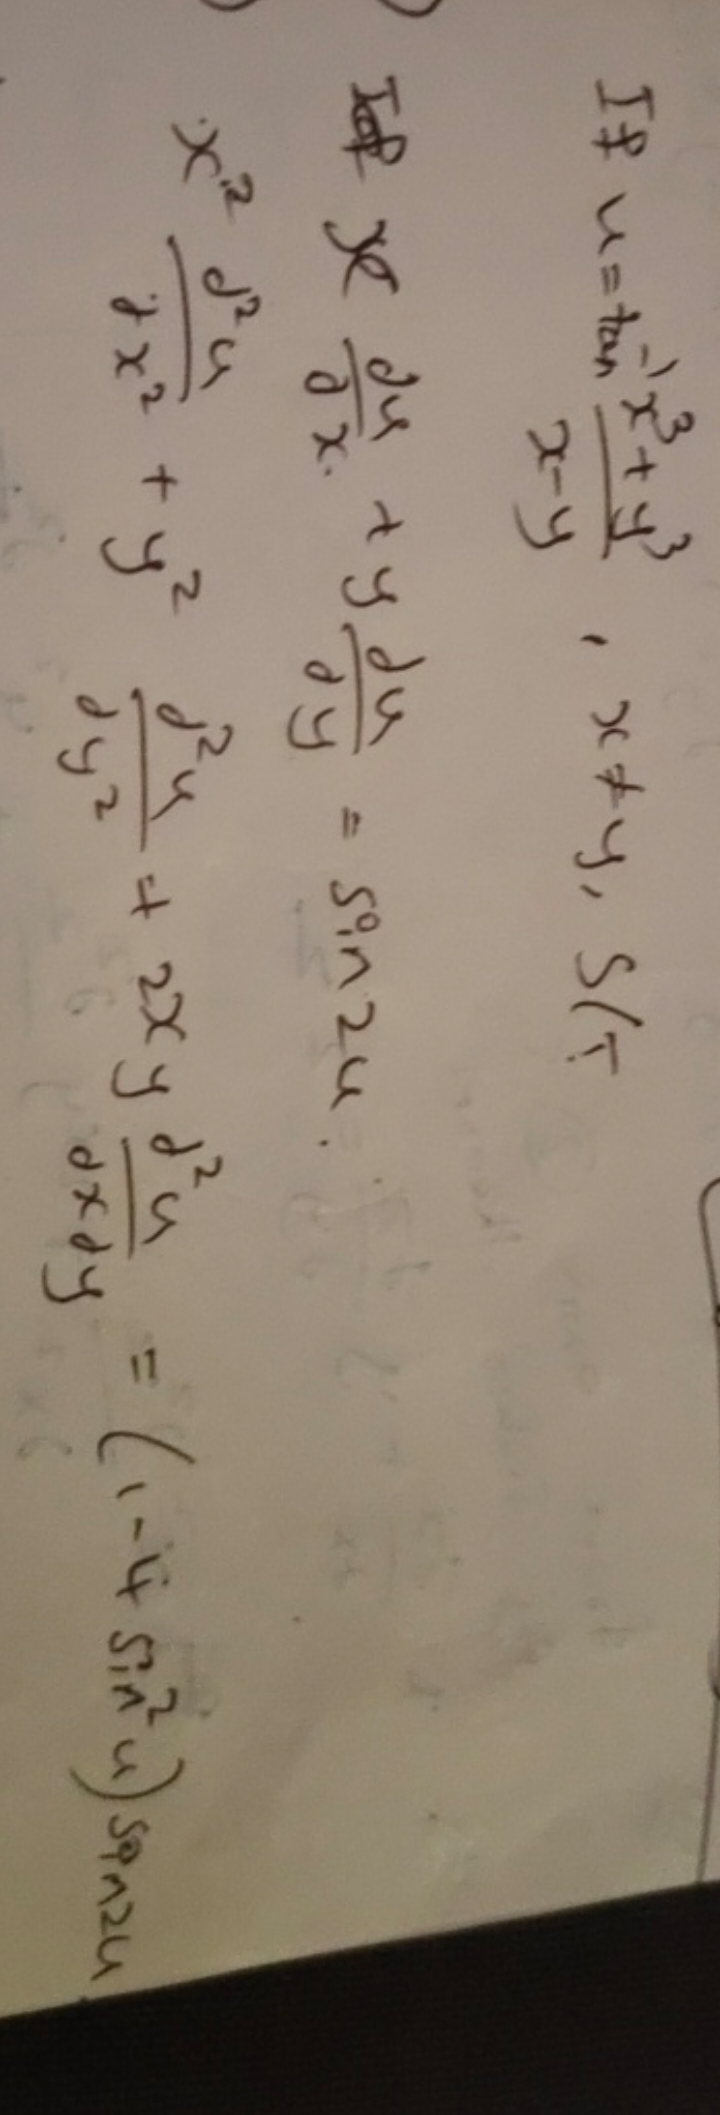 If u = tan⁻¹ (x³ + y³)/(x - y), x ≠ y, S/T
If x ∂u/∂x + y ∂u/∂y = sin 2u.
x² ∂²u/∂x² + y² ∂²u/∂y² + 2xy ∂²u/∂x∂y = (1 - 4 sin² u) sin 2u